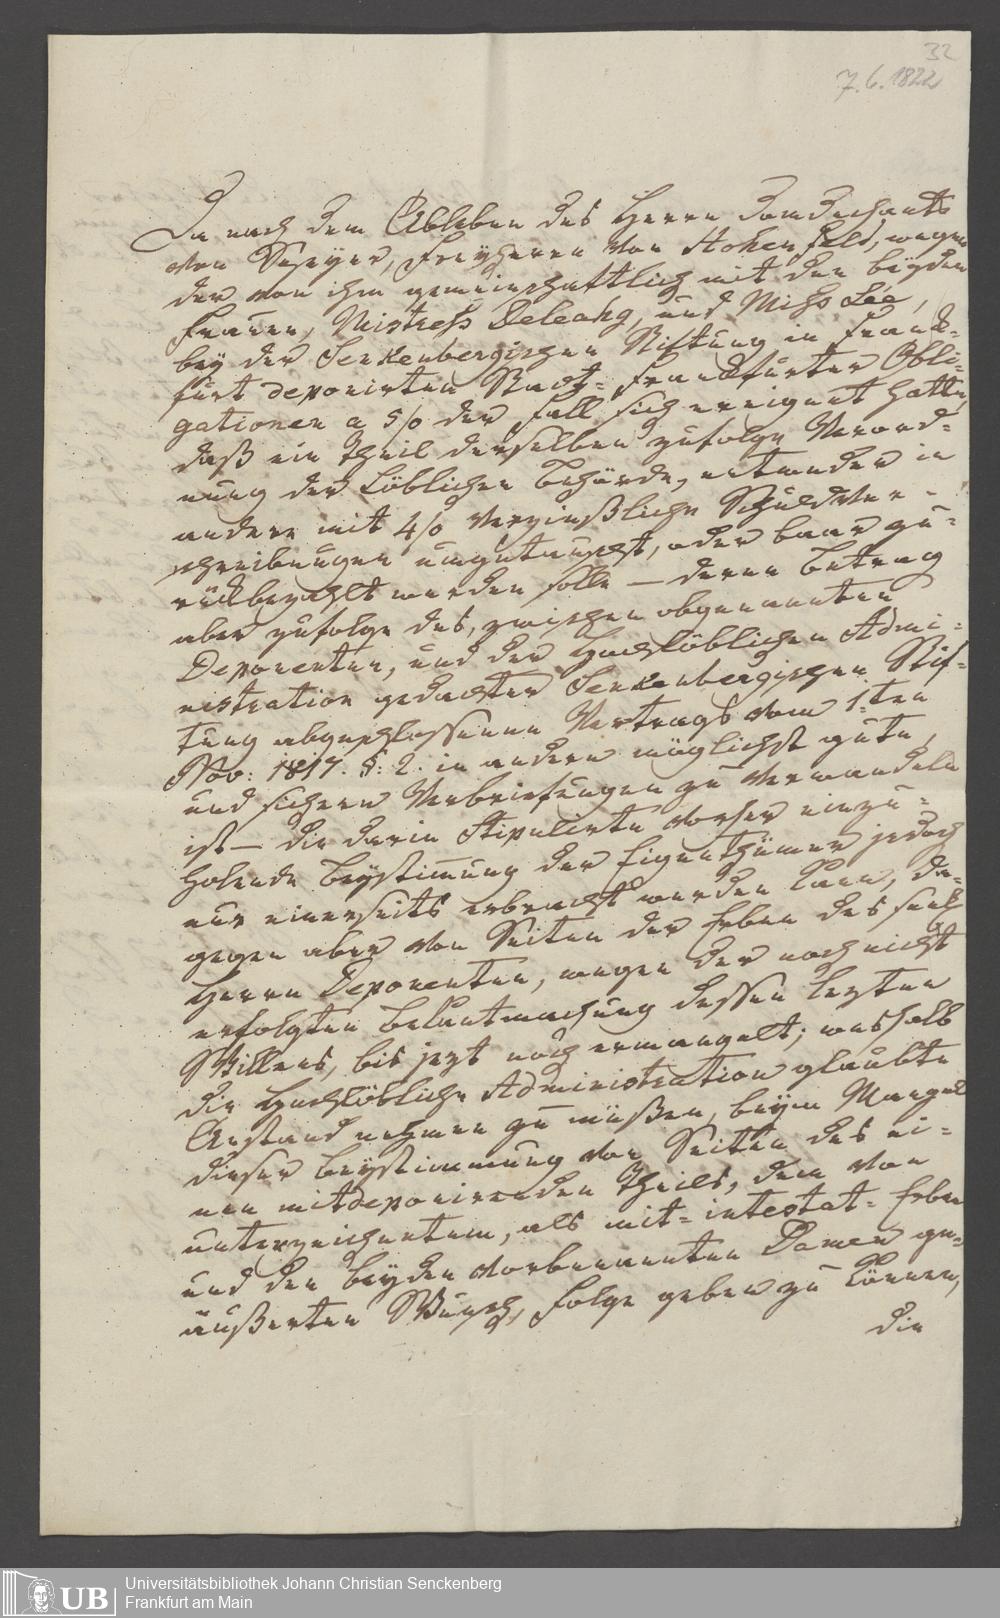 32
7.6.1822
Da nach dem Ableben des Herrn Domdechants
von Speyer, Freyherrn von Hohenfeld, wegen
der von ihm gemeinschaftlich mit den beyden
Frauen, Mistress Deleahg, und Miss Lée,
bey der Senkenbergischen Stiftung in Frank-
furt deponirten Stadt-Frankfurter Obli-
gationen a 5/o der Fall sich ereignet hatte,
daß ein Theil derselben zufolge Verord-
nung der Löblichen Behörde, entweder in
andere mit 4/o verzinßliche Schuldver-
schreibungen umgetauscht, oder baar zu-
rückbezahlt werden solle — deren Betrag
aber zufolge des, zwischen obgenannten
Deponenten, und der Hochlöblichen Admi-
nistration gedachter Senkenbergischen Stif-
tung abgeschlossenen Vertrags vom 1:ten
Nov: 1817. §: 2. in andern möglichst gute,
und sichern Verbriefungen zu verwandeln
ist — die darin Stipulirte vorher einzu-
holende Beystimung der Eigenthümer jedoch
nur einerseits erbracht werden kann, da-
gegen aber von Seiten der Erben des seel:
Herrn Deponenten, wegen der noch nicht
erfolgten Bekantmachung dessen lezten
Willens, bis jezt noch ermangelt; weshalb
die Hochlöbliche Administration glaubte
Anstand nehmen zu müßen, beym Mangel
dieser Beystimmung von Seiten des ei-
nen mitdeponirenden Theils, dem von
unterzeichnetem, als mit-intestat-Erben
und den beyden vorbenannten Damen ge-
äußerten Wunsch, Folge geben zu können,
die
Universitätsbibliothek Johann Christian Senckenberg
Frankfurt am Main
UB